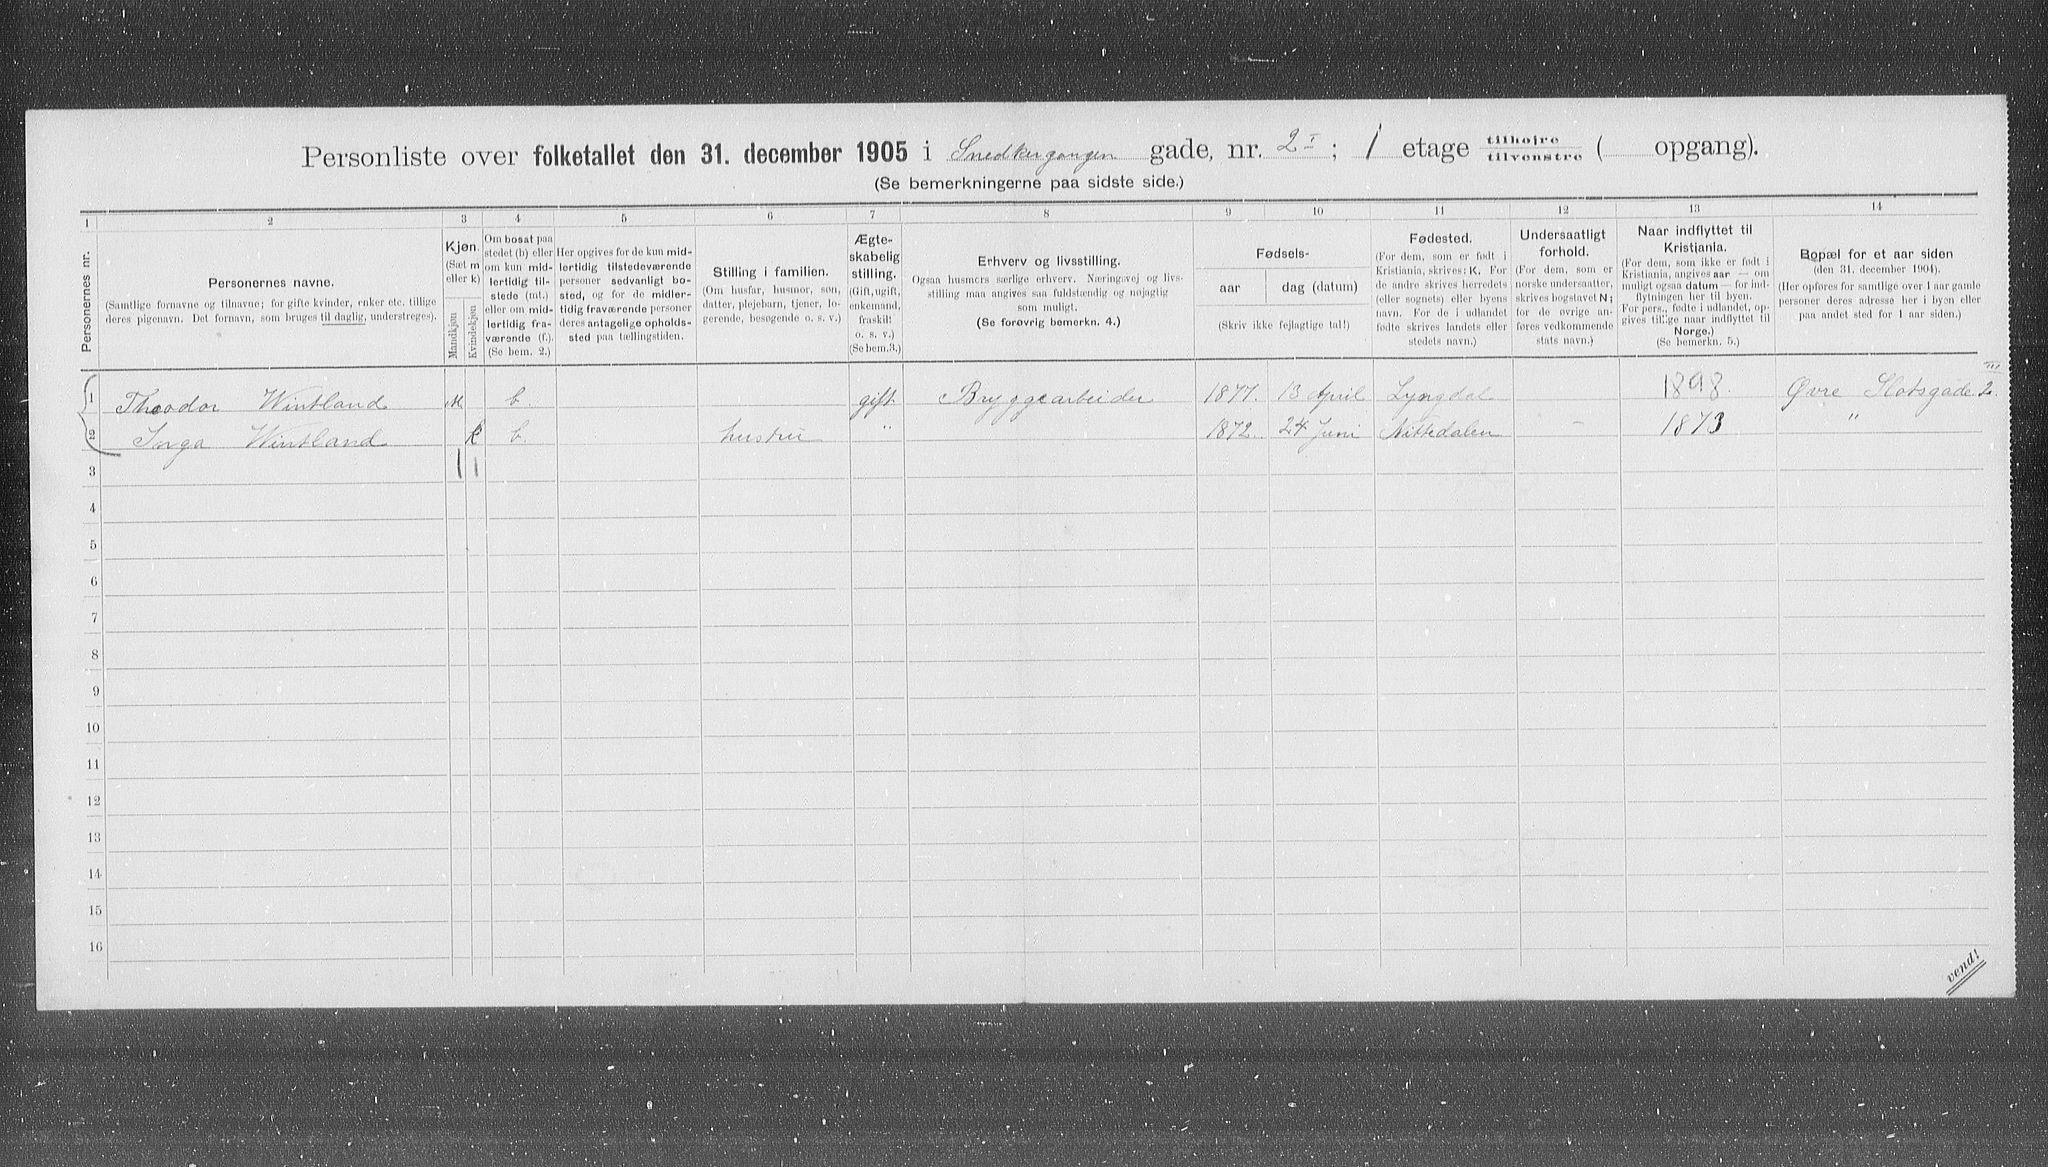 Personliste over folketallet den 31. december 1905 i Snedkergangen gade, nr. 2 I ; 1 etage tilhøjre / tilvenstre ( opgang).
(Se bemerkningerne paa sidste side.)
1 2 3 4 5 6 7 8 9 10 11 12 13 14
Personernes nr.
Personernes navne.
(Samtlige fornavne og tilnavne; for gifte kvinder, enker etc. tillige
deres pigenavn. Det fornavn, som bruges til daglig, understreges).
Kjøn.
(Sæt m
eller k)
Mandkjøn
Kvindekjøn
Om bosat paa
stedet (b) eller
om kun mid-
lertidig til-
stede (mt.)
eller om mid-
lertidig fra-
værende (f.).
(Se bem. 2.)
Her opgives for de kun mid-
lertidig tilstedeværende
personer sedvanligt bo-
sted, og for de midler-
tidig fraværende personer
deres antagelige opholds-
sted paa tællingstiden.
Stilling i familien.
(Om husfar, husmor, søn,
datter, plejebarn, tjener, lo-
gerende, besøgende o. s. v.)
Ægte-
skabelig
stilling.
(Gift, ugift,
enkemand,
fraskilt
o. s. v.)
(Se bem.3.)
Erhverv og livsstilling.
Ogsaa husmors særlige erhverv. Næringsvej og livs-
stilling maa angives saa fuldstændig og nøjagtig
som muligt.
(Se forøvrig bemerkn. 4.)
Fødsels-
aar dag (datum)
(Skriv ikke fejlagtige tal!)
Fødested.
(For dem, som er født i
Kristiania, skrives: K. For
de andre skrives herredets
(eller sognets) eller byens
navn. For de i udlandet
fødte skrives landets eller
stedets navn.)
Undersaatligt
forhold.
(For dem, som er
norske undersaatter,
skrives bogstavet N;
for de øvrige an-
føres vedkommende
stats navn.)
Naar indflyttet til
Kristiania.
(For dem, som ikke er født i
Kristiania, angives aar — om
muligt ogsaa datum — for ind-
flytningen her til byen.
For pers., fødte i udlandet, op-
gives tillige naar indflyttet til
Norge.)
(Se bemerkn. 5.)
Bopæl for et aar siden
(den 31. december 1904).
(Her opføres for samtlige over 1 aar gamle
personer deres adresse her i byen eller
paa andet sted for 1 aar siden.)
1 Theodor Wintland M b. gift. Bryggearbeider 1877. 13 April Lyngdal 1898. Øvre Slotsgade 2 III.
2 Inga Wintland k b. hustru " 1872. 24 Juni Nittedalen - 1873 "
3 1 1
4
5
6
7
8
9
10
11
12
13
14
15
16
vend!